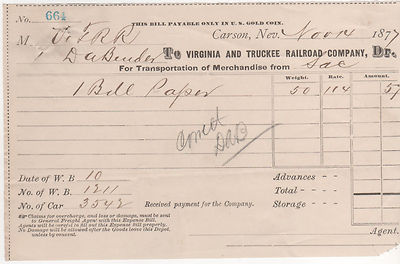 No. 664
THIS BILL PAYABLE ONLY IN U.S. GOLD COIN.
Carson, Nev. Nov 14 1877
M V & T RR
D A Bender To VIRGINIA AND TRUCKEE RAILROAD COMPANY, Dr.
For Transportation of Merchandise from Sac
Weight. Rate. Amount.
1 Bdl Paper 50 114 57
Correct
DAB
Date of W. B. 10 Advances - -
No. of W. B. 1211 Total - - - -
No. of Car 3542 Received payment for the Company. Storage - -
Claims for overcharge, and loss or damage, must be sent
to General Freight Agent with this Expense Bill.
Agents will be careful to fill out this Expense Bill properly.
No Damage will be allowed after the Goods leave this Depot,
unless by consent.
Agent.